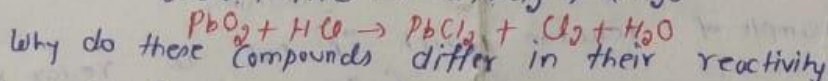 PbO₂ + HCl → PbCl₂ + Cl₂ + H₂O
Why do these compounds differ in their reactivity